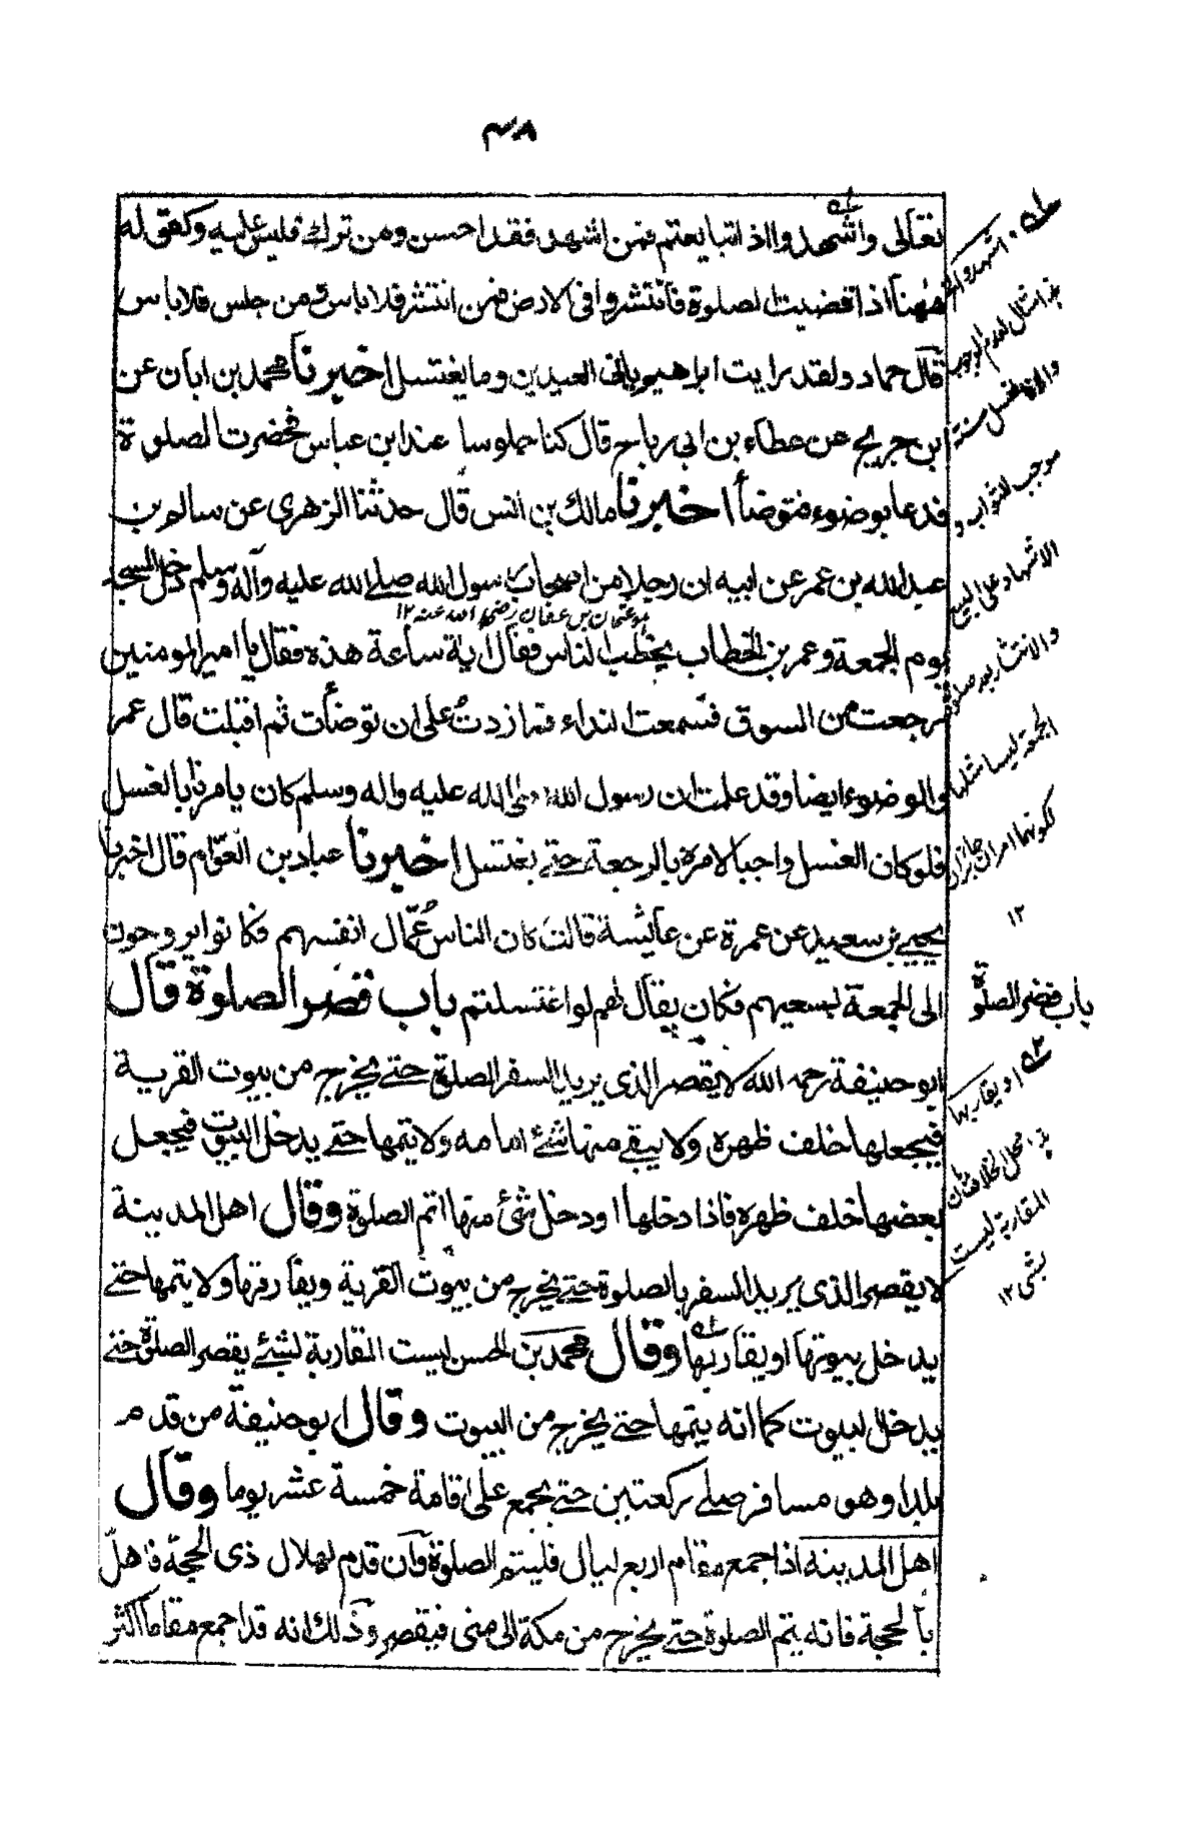 ٤٨
تعالى واشهدوا اذا تبايعتم فمن اشهد فقد احسن ومن ترك فليس عليه وكقوله
ههنا اذا قضيت الصلوة فانتشروا فى الارض فمن انتشر فلا باس ومن جلس فلا باس
قال حماد ولقد رايت ابراهيم ياتى العيدين وما يغتسل اخبرنا محمد بن ابان عن
ابن جريج عن عطاء بن ابى رباح قال كنا جلوسا عند ابن عباس فحضرت الصلوة
فدعا بوضوء فتوضأ اخبرنا مالك بن انس قال حدثنا الزهرى عن سالم بن
عبد الله بن عمر عن ابيه ان رجلا من اصحاب رسول الله صلے الله عليه وآله وسلم دخل المسجد
هو عثمان بن عفان رضى الله عنه ١٢
يوم الجمعة وعمر بن الخطاب يخطب الناس فقال اية ساعة هذه فقال يا امير المومنين
رجعت من السوق فسمعت النداء فما زدت على ان توضأت ثم اقبلت قال عمر
والوضوء ايضا وقد علمت ان رسول الله صلى الله عليه واله وسلم كان يامرنا بالغسل
فلو كان الغسل واجبا لامره بالرجعة حتے يغتسل اخبرنا عباد بن العوام قال اخبرنا
يحيے بن سعيد عن عمرة عن عائشة قالت كان الناس عمّال انفسهم فكانوا يروحون
الى الجمعة بسعيهم فكان يقال لهم لو اغتسلتم باب قصر الصلوة قال
ابو حنيفة رحمه الله لا يقصر الذى يريد السفر الصلوة حتے يخرج من بيوت القرية
فيجعلها خلف ظهره ولا يبقے منها شئ امامه ولا يتمها حتے يدخل البيوت فيجعل
بعضها خلف ظهره فاذا دخلها او دخل شئ منها اتم الصلوة وقال اهل المدينة
لا يقصر الذى يريد السفر بالصلوة حتے يخرج من بيوت القرية ويفارقها ولا يتمها حتے
يدخل بيوتها او يقاربها وقال محمد بن الحسن ليست المقاربة لشئے يقصر الصلوة حتے
يدخل البيوت كما انه يتمها حتے يخرج من البيوت وقال ابو حنيفة من قدم
بلدا وهو مسافر صلے ركعتين حتے يجمع على اقامة خمسة عشر يوما وقال
اهل المدينة اذا جمع مقام اربع ليال فليتم الصلوة وان قدم لهلال ذى الحجة فاهلّ
بالحجة فانه يتم الصلوة حتے يخرج من مكة الى منى فيقصر وذلك انه قد اجمع مقاما اكثر
والاشهاد على البيع
والانتشار بعد صلوة
الجمعة ليسا
لكونهما امران جائزان
١٢
باب قصر الصلوة
او يقاربها
المقاربة ليست
بشئ ١٢